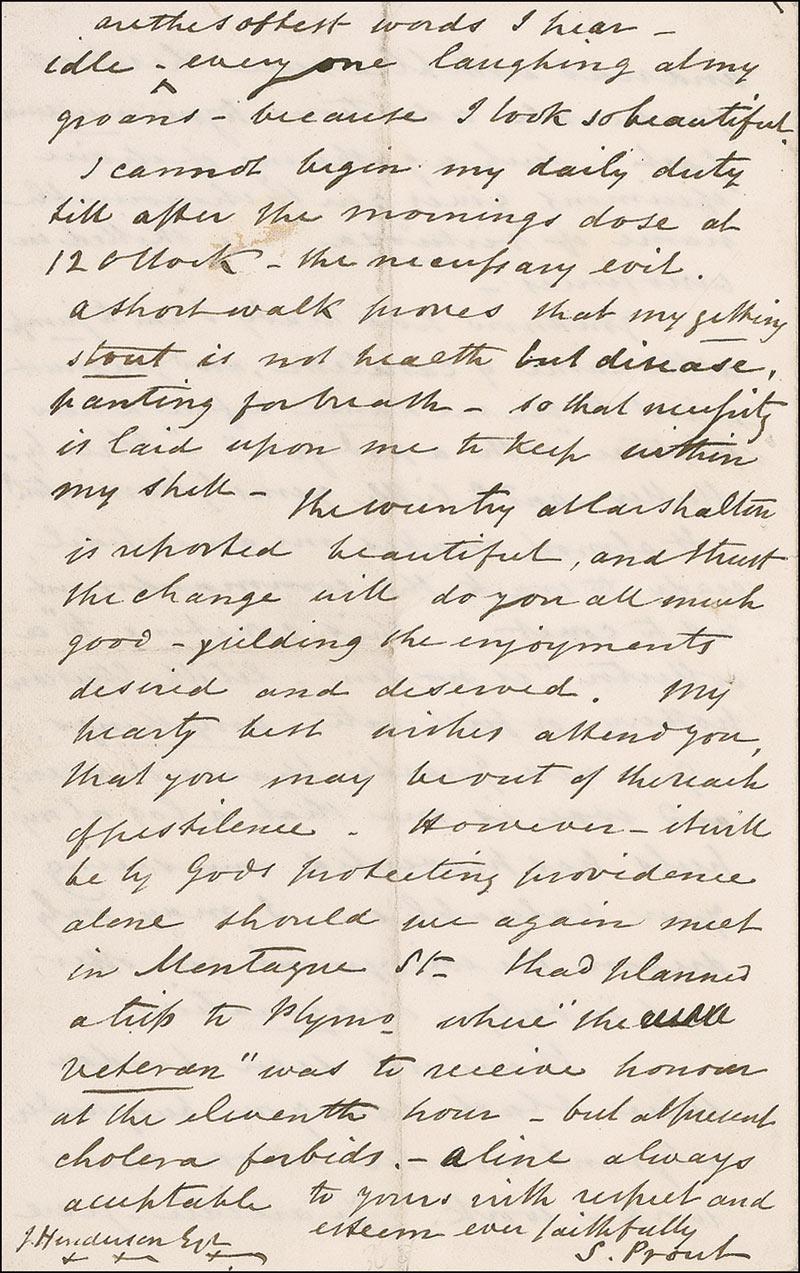 are the softest words I hear –
idle – every one laughing at my
groans – because I look so beautiful.
I cannot begin my daily duty
till after the mornings dose at
12 oClock – the necessary evil.
a short walk proves that my getting
stout is not health but disease,
panting for breath – so that necessity
is laid upon me to keep within
my shell – The country at Carshalton
is reported beautiful, and trust
the change will do you all much
good – yielding the enjoyments
desired and deserved. My
hearty best wishes attend you,
that you may be out of the reach
of pestilence. However – it will
be by Gods protecting providence
alone should we again meet
in Montague St. I had planned
a trip to Plymo where "the
veteran" was to receive honour
at the eleventh hour – but at present
cholera forbids. – a line always
acceptable to yours with respect and
esteem ever faithfully
J. Henderson Esqr
S. Prout